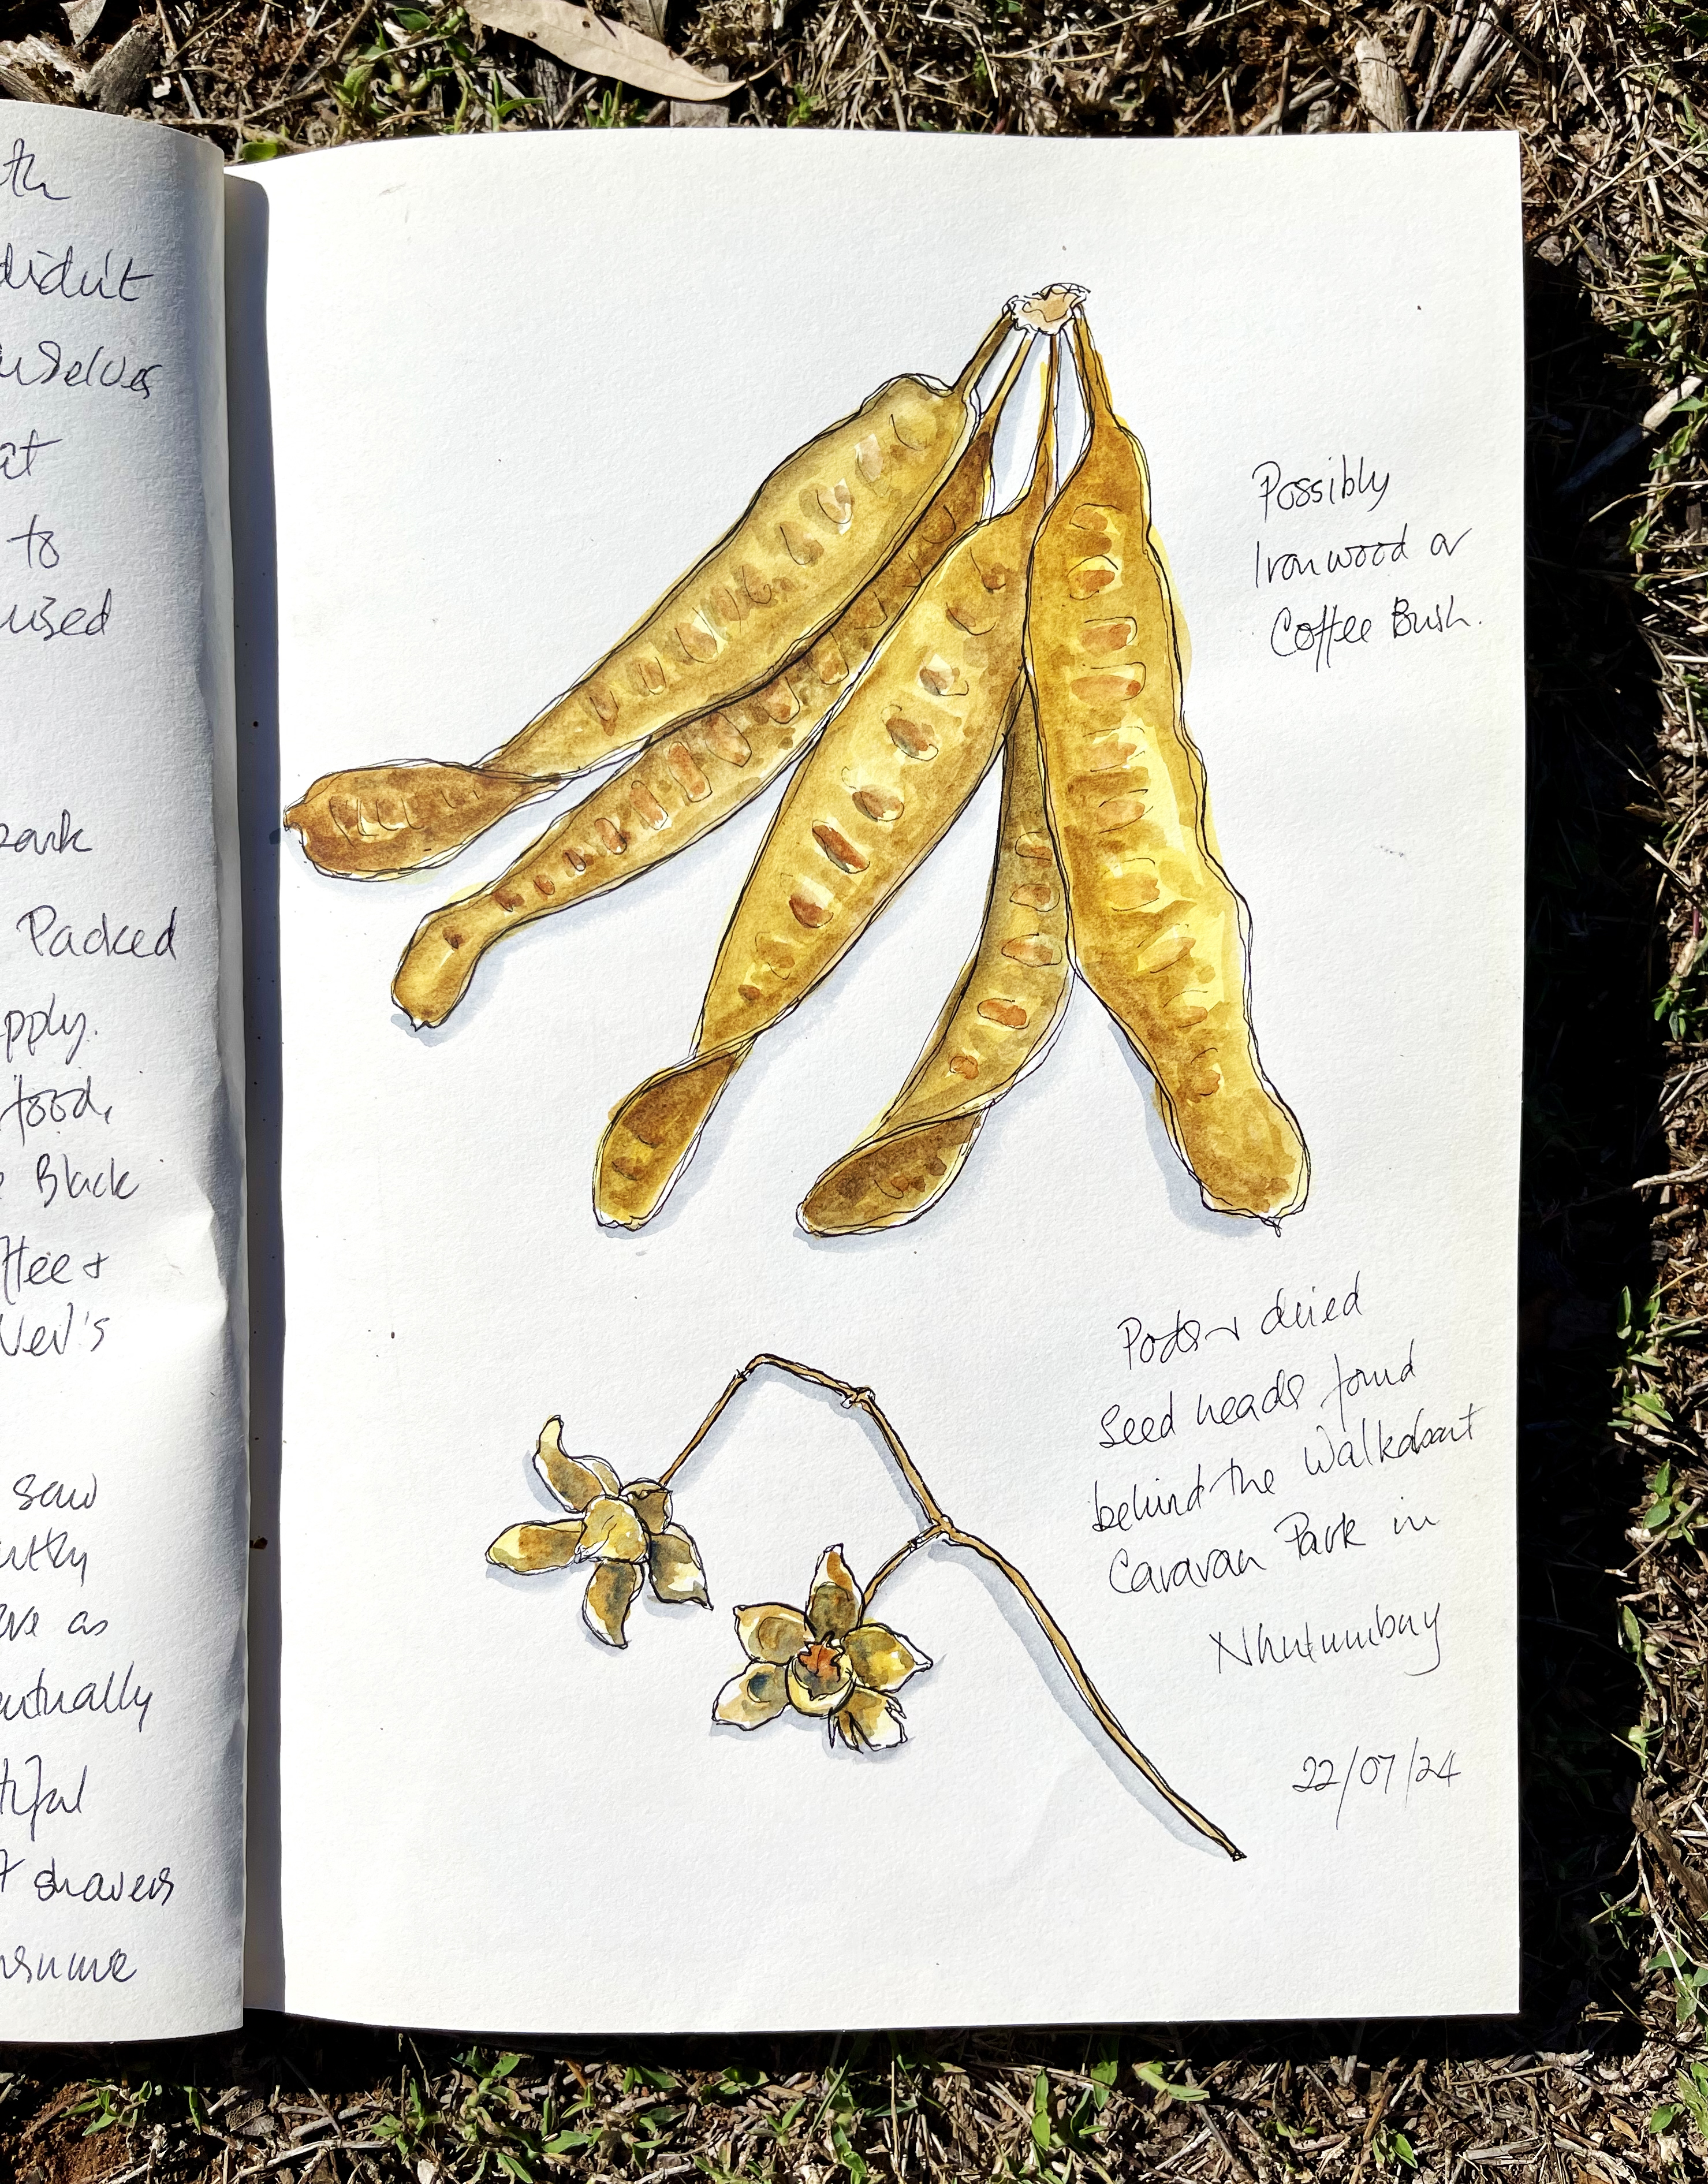 th
didn't
urselves
at
to
used
park
Packed
pply.
food,
Black
ffee +
Neil's
saw
ve as
entually
tiful
t shavers
Possibly
Ironwood or
Coffee Bush.
Pods + dried
seed heads found
behind the Walkabout
Caravan Park in
Nhulumbuy
22/07/24